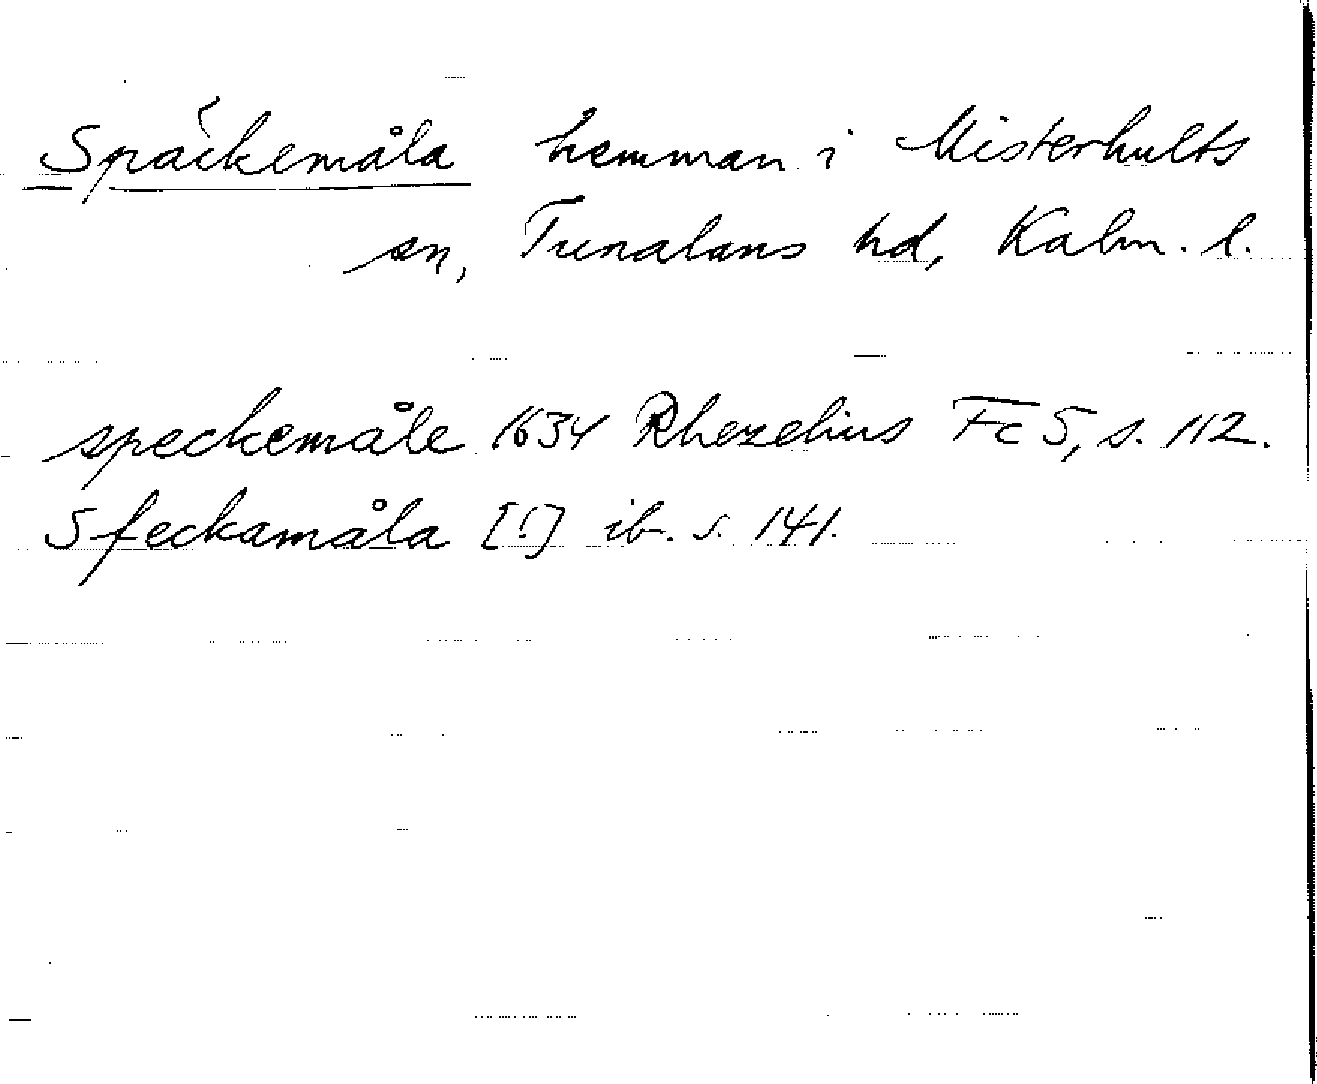 Späckemåla hemman i Misterhults
sn, Tunaläns hd, Kalm. l.
speckemåle 1634 Rhezelius Fc 5, s. 112.
Sfeckamåla [!] ib. s. 141.